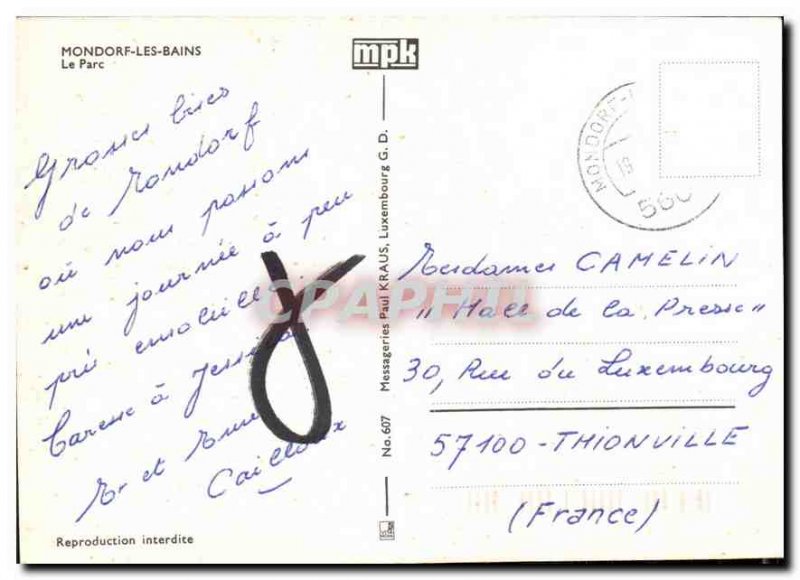 MONDORF-LES-BAINS
Le Parc
mpk
Grosses bises
de Mondorf
où nous passons
une journée à peu
près ensoleillée.
Caresse à Jessica
Mr et Mme
Cailloux
Reproduction interdite
No. 607 Messageries Paul KRAUS, Luxembourg G. D.
MONDORF-
19
560
Mesdames CAMELIN
"Hall de la Presse"
30, Rue du Luxembourg
57100-THIONVILLE
(France)
CPAPHIL